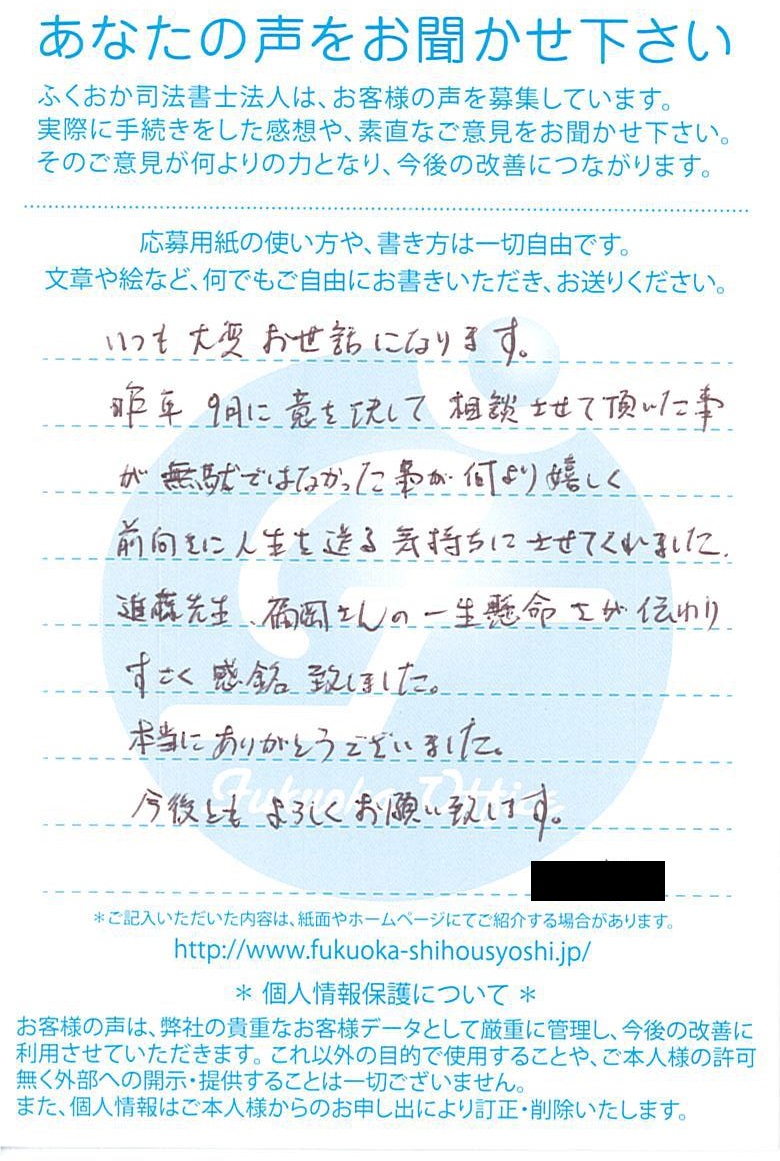 あなたの声をお聞かせ下さい
ふくおか司法書士法人は、お客様の声を募集しています。
実際に手続きをした感想や、素直なご意見をお聞かせ下さい。
そのご意見が何よりの力となり、今後の改善につながります。
応募用紙の使い方や、書き方は一切自由です。
文章や絵など、何でもご自由にお書きいただき、お送りください。
いつも大変お世話になります。
昨年9月に意を決して相談させて頂いた事
が無駄ではなかった事が何より嬉しく
前向きに人生を送る気持ちにさせてくれました.
進藤先生、福岡さんの一生懸命さが伝わり
すごく感銘致しました。
本当にありがとうございました。
Fukuoka Office
今後ともよろしくお願い致します。
＊ご記入いただいた内容は、紙面やホームページにてご紹介する場合があります。
http://www.fukuoka-shihousyoshi.jp/
＊ 個人情報保護について ＊
お客様の声は、弊社の貴重なお客様データとして厳重に管理し、今後の改善に
利用させていただきます。これ以外の目的で使用することや、ご本人様の許可
無く外部への開示・提供することは一切ございません。
また、個人情報はご本人様からのお申し出により訂正・削除いたします。